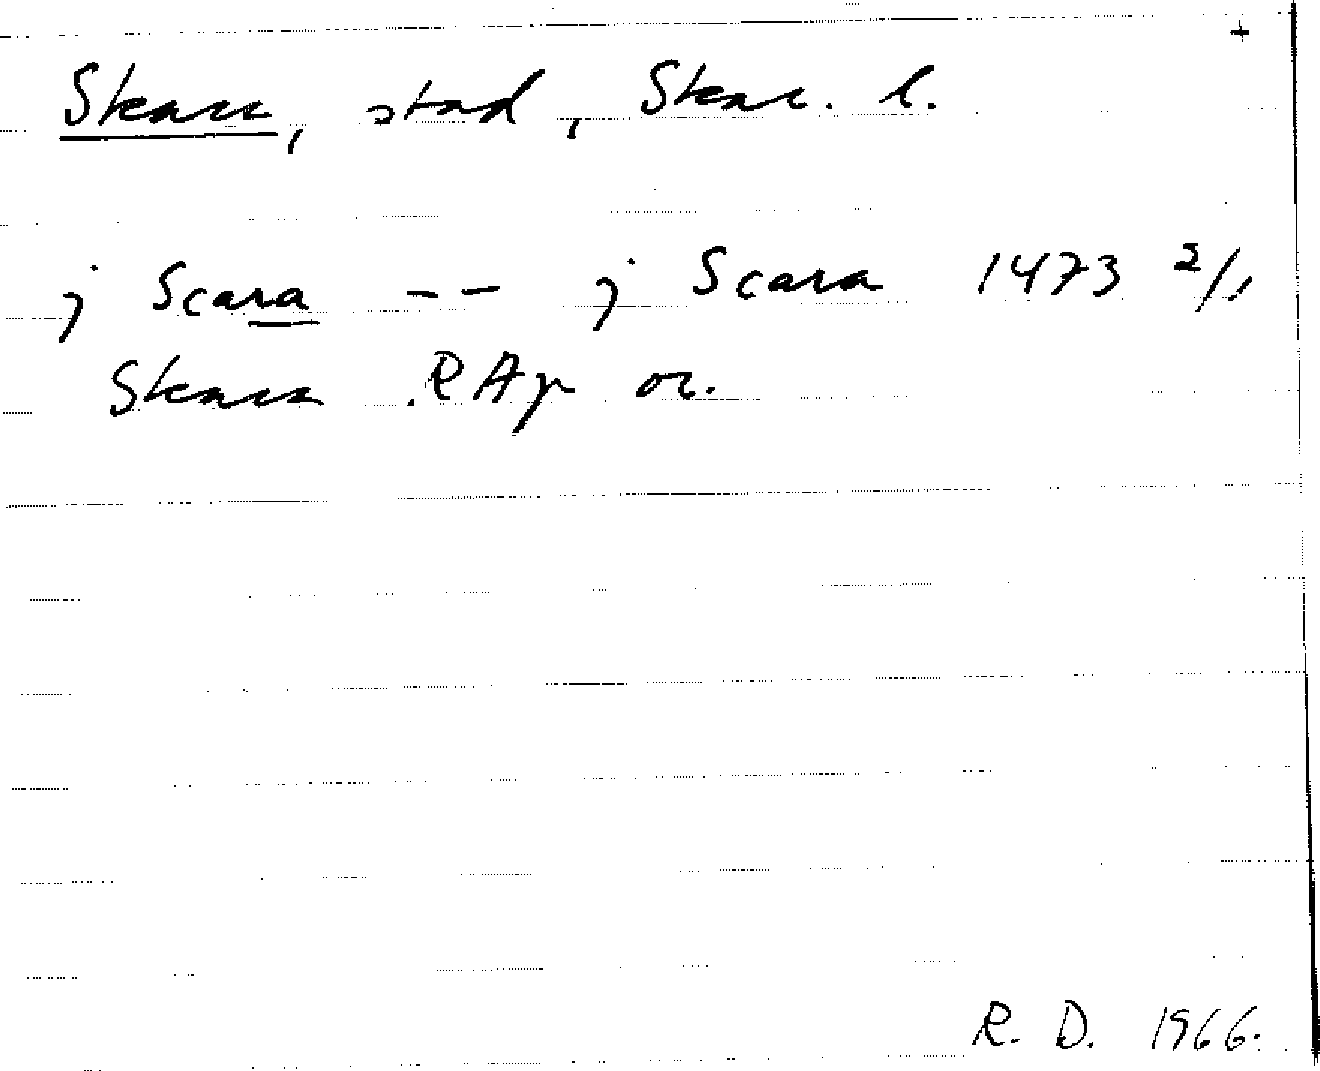 +
Skara, stad, Skar. l.
j Scara -- j Scara 1473 2/1
Skara RAp or.
R. D. 1966.